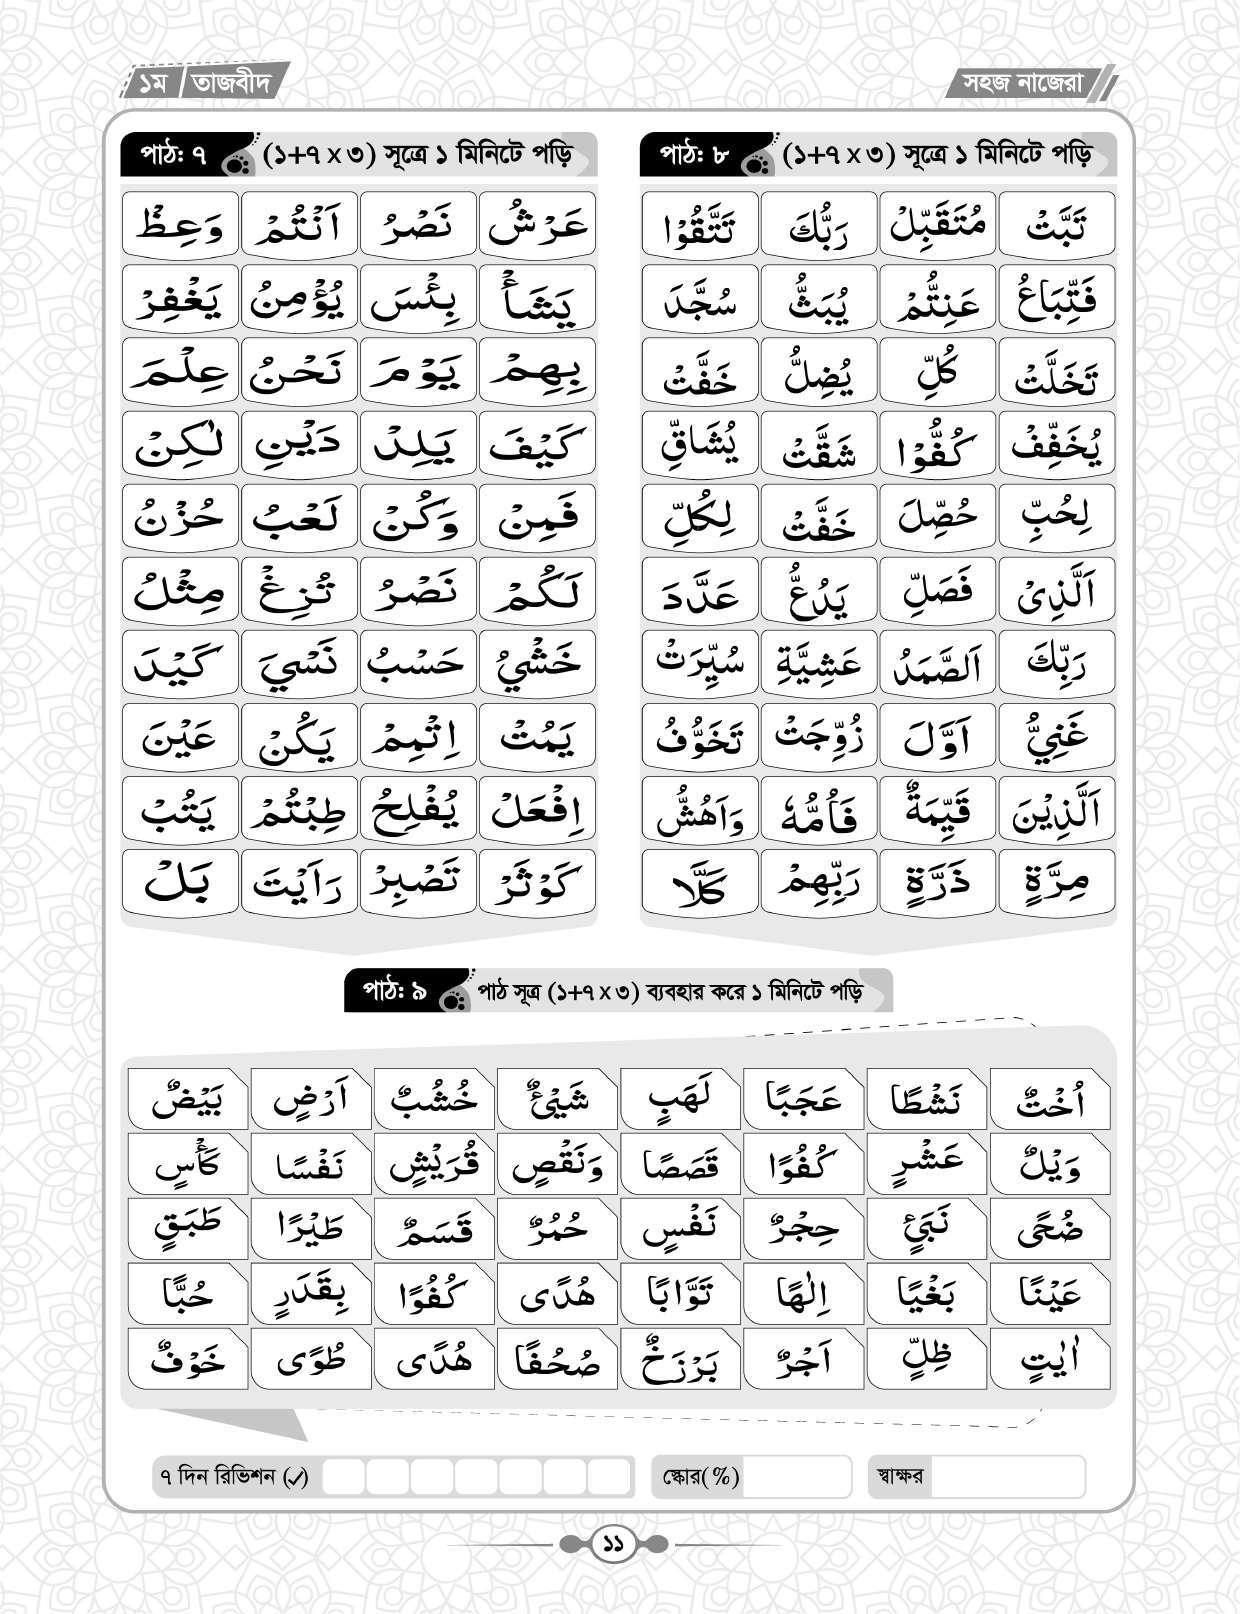 ১ম তাজবীদ
সহজ নাজেরা
পাঠ: ৭ (১+৭ x ৩) সূত্রে ১ মিনিটে পড়ি
عَرْشُ نَصْرُ اَنْتُمْ وَعِظْ
يَشَأْ بِئْسَ يُؤْمِنُ يَغْفِرْ
بِهِمْ يَوْمَ نَحْنُ عِلْمَ
كَيْفَ يَلِدْ دَيْنِ لٰكِنْ
فَمِنْ وَكُنْ لَعْبُ حُزْنُ
لَكُمْ نَصْرُ تُزِغْ مِثْلُ
خَشْيُ حَسْبُ نَسْيَ كَيْدَ
يَمُتْ اِثْمِمْ يَكُنْ عَيْنَ
اِفْعَلْ يُفْلِحُ طِبْتُمْ يَتُبْ
كَوْثَرْ تَصْبِرْ رَاَيْتَ بَلْ
পাঠ: ৮ (১+৭ x ৩) সূত্রে ১ মিনিটে পড়ি
تَبَّتْ مُتَقَبِّلْ رَبُّكَ تَتَّقُوْا
فَتِّبَاعُ عَنِتُّمْ يُبَثُّ سُجَّدَ
تَخَلَّتْ كُلِّ يُضِلُّ خَفَّتْ
يُخَفِّفْ كُفُّوْا شَقَّتْ يُشَاقِّ
لِحُبِّ حُصِّلَ خَفَّتْ لِكُلِّ
اَلَّذِىْ فَصَلِّ يَدُعُّ عَدَّدَ
رَبِّكَ اَلصَّمَدُ عَشِيَّةِ سُيِّرَتْ
غَنِيُّ اَوَّلَ زُوِّجَتْ تَخَوُّفُ
اَلَّذِيْنَ قَيِّمَةٌ فَاُمُّهٗ وَاَهُشُّ
مِرَّةٍ ذَرَّةٍ رَبِّهِمْ كَلَّا
পাঠ: ৯ পাঠ সূত্র (১+৭ x ৩) ব্যবহার করে ১ মিনিটে পড়ি
اُخْتٌ نَشْطًا عَجَبًا لَهَبٍ شَيْئٌ خُشُبٌ اَرْضٍ بَيْضٌ
وَيْلٌ عَشْرٍ كُفُوًا قَصَصًا وَنَقْصٍ قُرَيْشٍ نَفْسًا كَأْسٍ
ضُحًى نَبَئٍ حِجْرٌ نَفْسٍ حُمُرٌ قَسَمٌ طَيْرًا طَبَقٍ
عَيْنًا بَغْيًا اِلٰهًا تَوَّابًا هُدًى كُفُوًا بِقَدَرٍ حُبًّا
اٰيٰتٍ ظِلٍّ اَجْرٌ بَرْزَخٌ صُحُفًا هُدًى طُوًى خَوْفٌ
৭ দিন রিভিশন (✓) স্কোর(%) স্বাক্ষর
১১